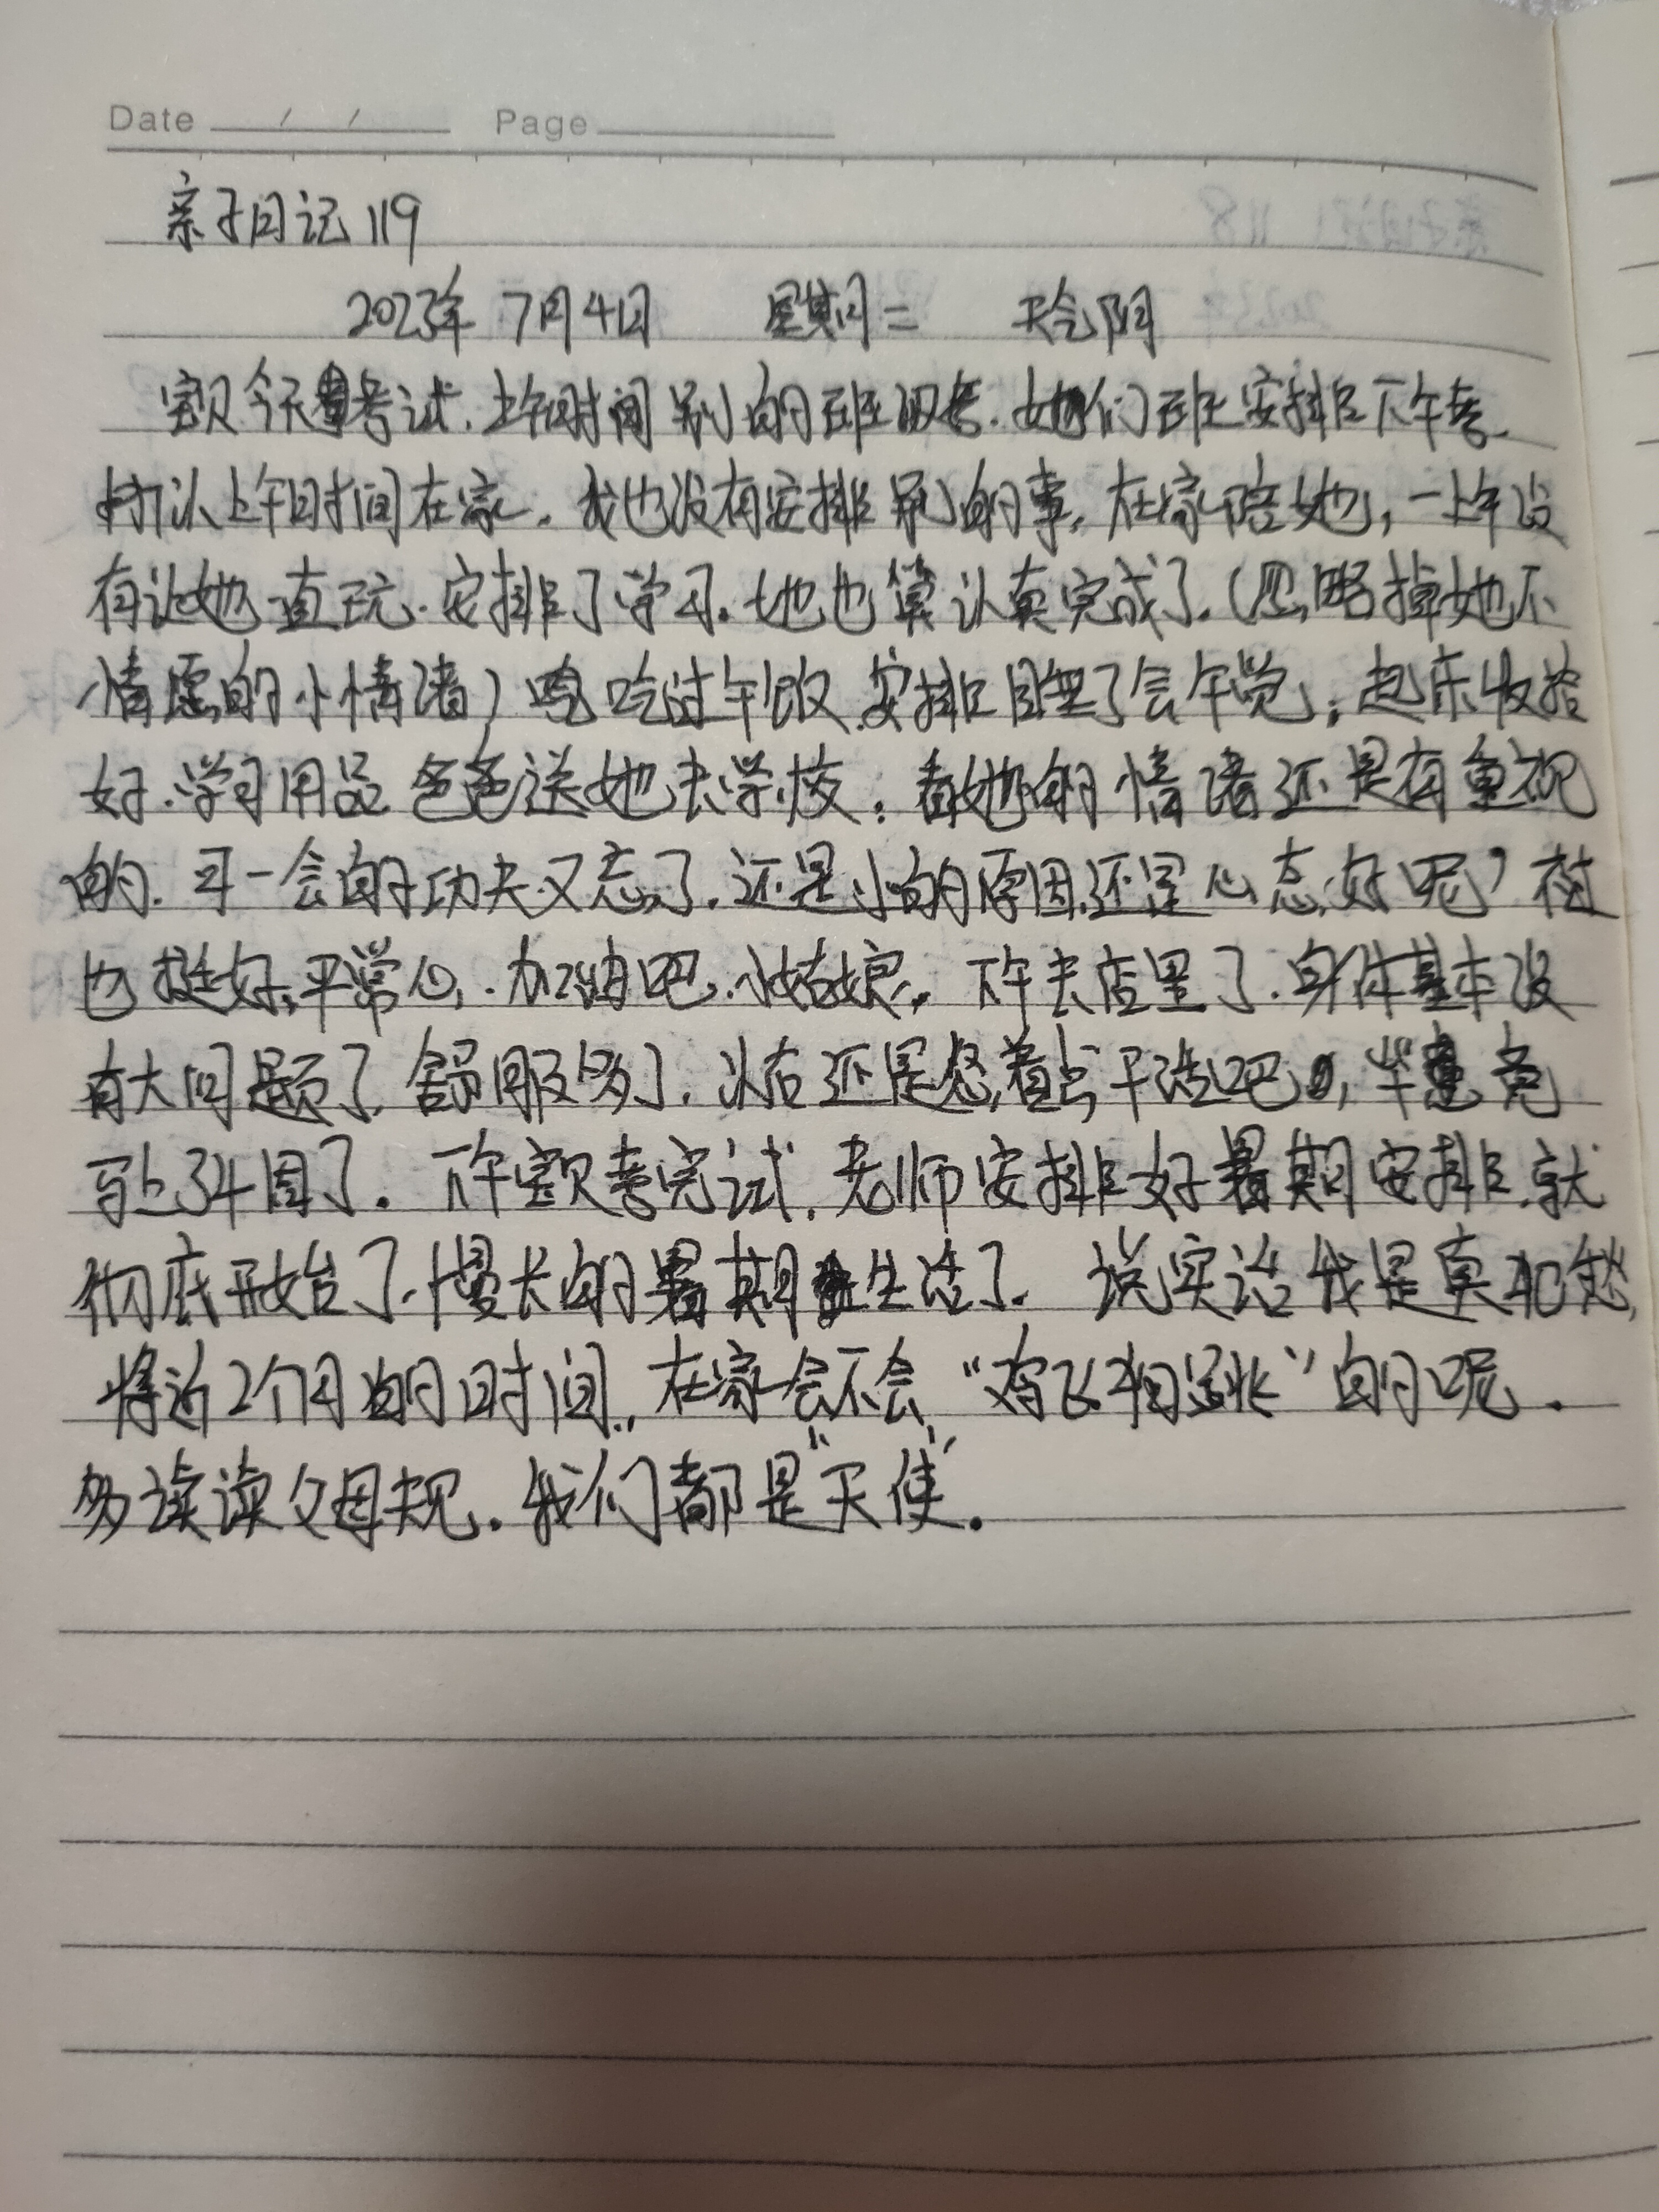 Date / / Page
亲子日记119
2023年 7月4日 星期二 天气阴
宝贝今天考试.上午时间别的班级考.她们班安排下午考.
所以上午时间在家.我也没有安排别的事,在家陪她,一上午没
有让她直玩.安排了学习.她也算认真完成了.(忽略掉她不
情愿的小情绪)吃过午饭.安排睡了会午觉,起床收拾
好.学习用品 爸爸送她去学校.看她的情绪还是有重视
的.可一会的功夫又忘了.还是小的原因,还是心态好呢?
也挺好,平常心,.加油吧.小姑娘.下午去店里了.身体基本没
有大问题了.舒服多了.以后还是悠着点干活吧,毕竟
马上34周了.下午宝贝考完试.老师安排好暑期安排.就
彻底开始了.慢长的暑期生活了.说实话我是真犯愁,
将近2个月的时间.,在家会不会“鸡飞狗跳”的呢.
多读读父母规.我们都是“天使”.